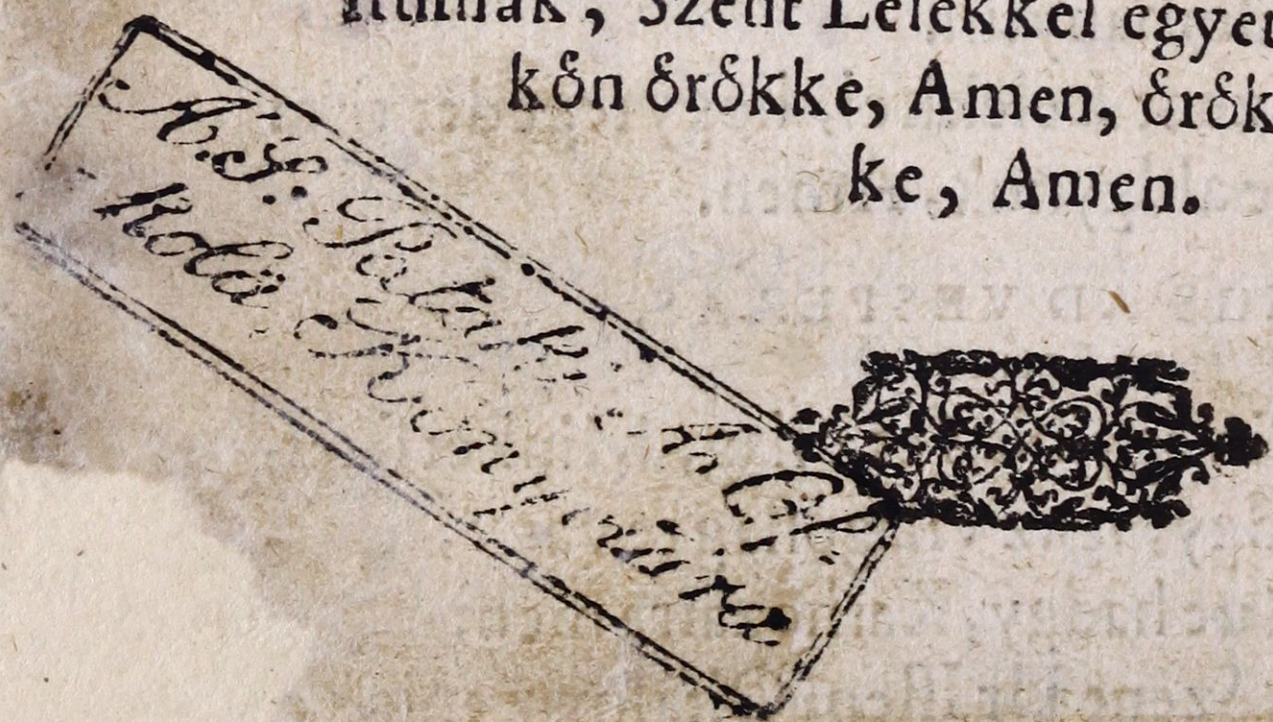 Szent Lelekkel egyet
kȯ̇n ȯ̇rȯ̇kke, Amen, ȯ̇rȯ̇k
ke, Amen.
A. S. Pataki
Kola Könyvtára